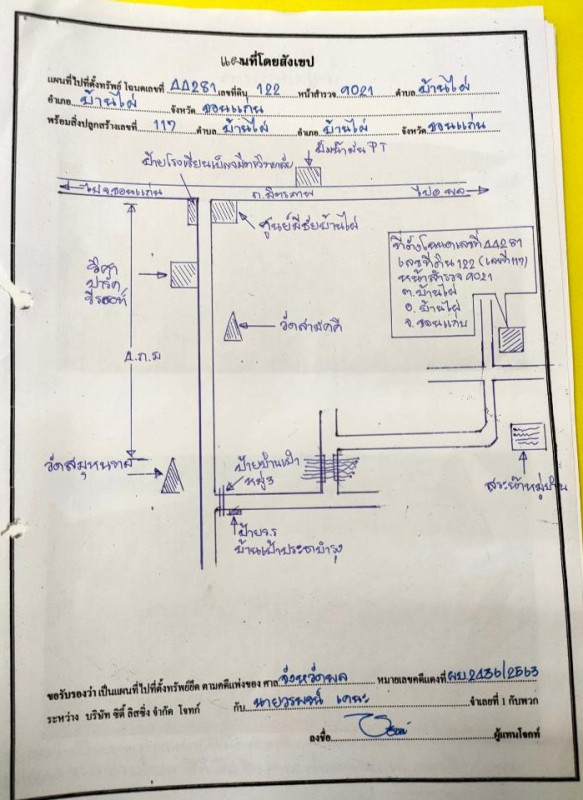 แผนที่โดยสังเขป
แผนที่ไปที่ตั้งทรัพย์ โฉนดเลขที่ 44281 เลขที่ดิน 122 หน้าสำรวจ 9021 ตำบล บ้านไผ่
อำเภอ บ้านไผ่ จังหวัด ขอนแก่น
พร้อมสิ่งปลูกสร้างเลขที่ 117 ตำบล บ้านไผ่ อำเภอ บ้านไผ่ จังหวัด ขอนแก่น
ปั๊มน้ำมัน PT
ป้ายโรงเรียน
ไป จ.ขอนแก่น
ถ.มิตรภาพ
ไป อ.พล
ศูนย์มีชัยบ้านไผ่
ที่ตั้งโฉนดเลขที่ 44281
เลขที่ดิน 122 (เลขที่ 117)
หน้าสำรวจ 9021
ต.บ้านไผ่
อ.บ้านไผ่
จ.ขอนแก่น
ปาร์ค
รีสอร์ท
วัดสามัคคี
4 ก.ม
ป้ายบ้านเป้า
หมู่ 3
สระน้ำหมู่บ้าน
ป้าย ร.ร
บ้านเป้าประชาบำรุง
ขอรับรองว่า เป็นแผนที่ไปที่ตั้งทรัพย์ยึด ตามคดีแพ่งของ ศาล จังหวัดพล หมายเลขคดีแดงที่ ผบ.2436/2563
ระหว่าง บริษัท ซิตี้ ลิสซิ่ง จำกัด โจทก์ กับ นาย จำเลยที่ 1 กับพวก
ลงชื่อ ผู้แทนโจทก์